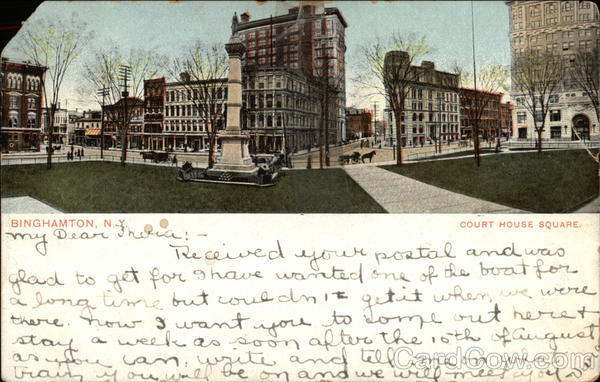 BINGHAMTON, N.Y. COURT HOUSE SQUARE.
My Dear Thora:-
Received your postal and was
glad to get for I have wanted one of the boat for
a long time but couldn't get it when we were
there. Now I want you to come out here &
stay a week as soon after the 10th of August
as you can, write and tell me what
train you will be on and we will meet you
CardCow.com